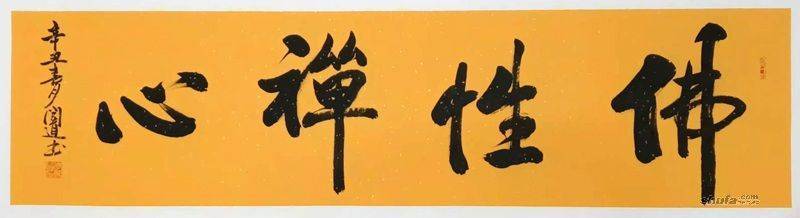 佛性禪心
辛丑春月道书
shufa.com